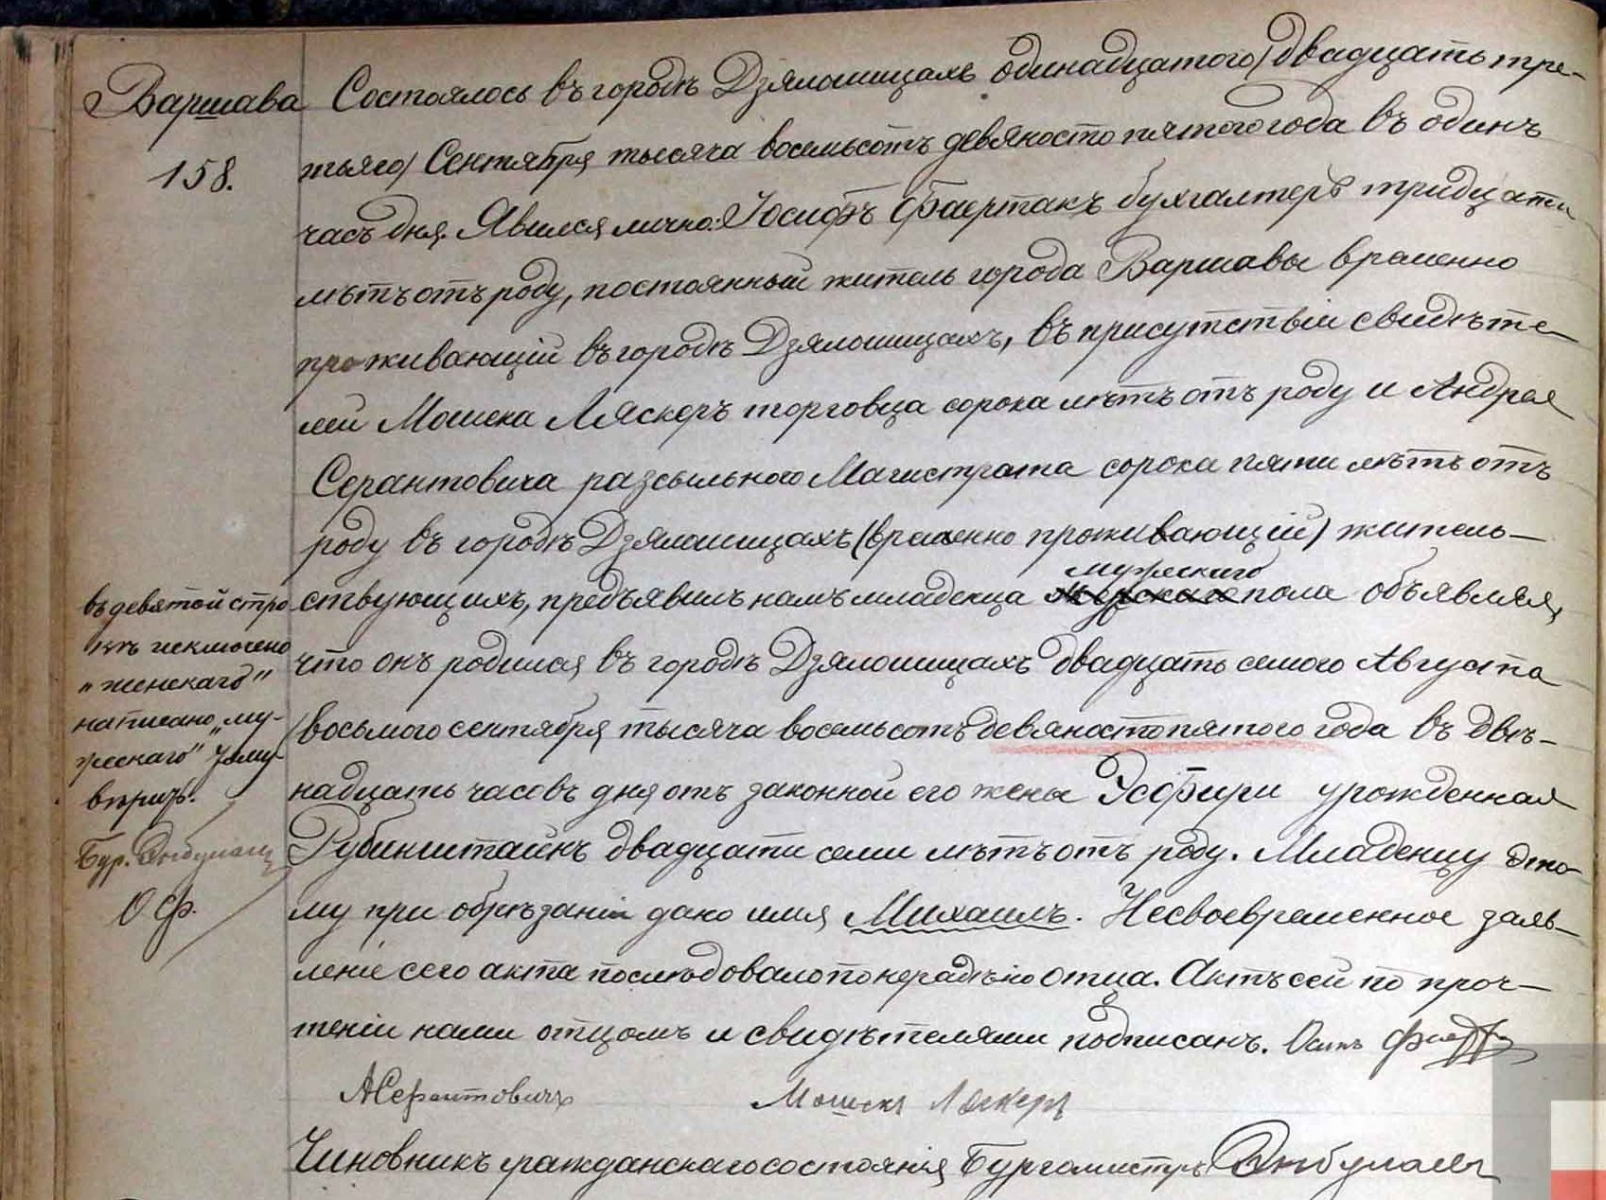 Варшава
158.
Состоялось въ городѣ Дзялошицахъ одинадцатого/двадцать тре-
тьяго/ Сентября тысяча восемьсотъ девяносто пятого года въ одинъ
часъ дня. Явился лично: Іосифъ Фаертакъ бухгалтеръ тридцати
лѣтъ отъ роду, постоянный житель города Варшавы временно
проживающій въ городѣ Дзялошицахъ, въ присутствіи свидѣте-
лей Мошека Ляскеръ торговца сорока лѣтъ отъ роду и Андрея
Серантовича разсыльного Магистрата сорока пяти лѣтъ отъ
роду въ городѣ Дзялошицахъ (временно проживающій) житель-
ствующихъ, предъявилъ намъ младенца мужескаго пола объявляя,
что онъ родился въ городѣ Дзялошицахъ двадцать семого Августа
/восьмого сентября тысяча восемьсотъ девяносто пятого года въ двѣ-
надцать часовъ дня отъ законной его жены Эсфири урожденная
Рубинштайнъ двадцати семи лѣтъ отъ роду. Младенцу это-
му при обрѣзаніи дано имя Михаилъ. Несвоевременное заяв-
леніе сего акта послѣдовало по нерадѣнію отца. Актъ сей по проч-
теніи нами отцомъ и свидѣтелями подписанъ.
въ девятой стро
кѣ исключено
"женскаго"
написано "му-
жескаго"
Бур.
АСерантовичъ
Мошекъ Ляскеръ
Чиновникъ гражданскаго состоянія Бургомистръ